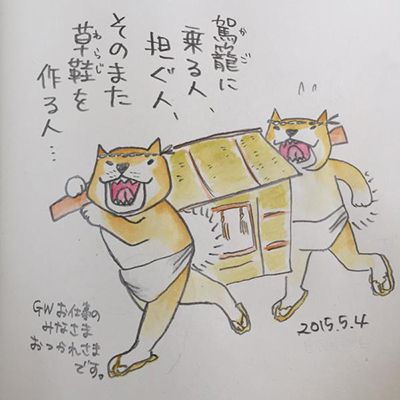 駕籠に
乗る人、
担ぐ人、
そのまた
草鞋を
作る人…
かご
わらじ
GWお仕事の
みなさま
おつかれさま
です。
2015.5.4